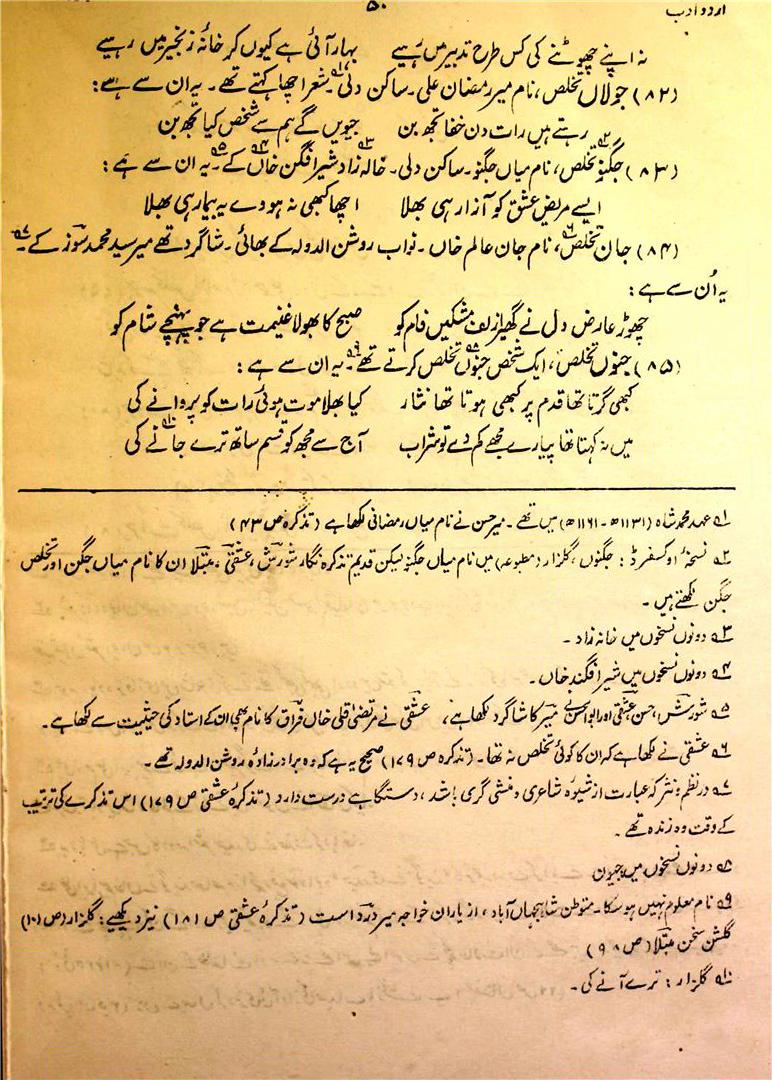 اردو ادب
۵۰
نہ اپنے چھوٹنے کی کس طرح تدبیر میں رہیے بہار آئی ہے کیوں کر خانۂ زنجیر میں رہیے
(۸۲) جولاں تخلص، نام میر رمضان علی۔ ساکن دلی ۱؎۔ شعر اچھا کہتے تھے۔ یہ ان سے ہے:
رہتے ہیں رات دن خفا تجھ بن جیویں گے ہم سے شخص کیا تجھ بن
(۸۳) جگنو ۲؎ تخلص، نام میاں جگنو۔ ساکن دلی۔ خالہ زاد ۳؎ شیر افگن خاں ۴؎ کے ۵؎۔ یہ ان سے ہے:
ایسے مریض عشق کو آزار ہی بھلا اچھا کبھی نہ ہووے یہ بیمار ہی بھلا
(۸۴) جان تخلص ۶؎، نام جان عالم خاں۔ نواب روشن الدولہ کے بھائی۔ شاگرد تھے میر سید محمد سوز کے ۷؎۔
یہ اُن سے ہے:
چھوڑ عارض دل نے گھیرا زلف مشکیں فام کو صبح کا بھولا غنیمت ہے جو پہنچے شام کو
(۸۵) جنوں تخلص، ایک شخص جنوں ۸؎ تخلص کرتے تھے ۹؎۔ یہ ان سے ہے:
کبھی گرتا تھا قدم پر کبھی ہوتا تھا نثار کیا بھلا موت ہوئی رات کو پروانے کی
میں نہ کہتا تھا پیارے مجھے کم دے تو شراب آج سے مجھ کو قسم ساتھ ترے جانے ۱۰؎ کی
۱؎ عہد محمد شاہ (۱۱۳۱ھ - ۱۱۶۱ھ) میں تھے۔ میر حسن نے نام میاں رمضانی لکھا ہے (تذکرہ ص ۴۳)
۲؎ نسخۂ اوکسفرڈ: جگنوں، گلزار (مطبوعہ) میں نام میاں جگنو لیکن قدیم تذکرہ نگار شورش، عشقی، مبتلا ان کا نام میاں جگن اور تخلص
جگن لکھتے ہیں۔
۳؎ دونوں نسخوں میں خانہ زاد۔
۴؎ دونوں نسخوں میں شیر افگند خاں۔
۵؎ شورش، حسن، عشقی اور ابوالحسن نے میر کا شاگرد لکھا ہے، عشقی نے مرتضیٰ قلی خاں فراق کا نام بھی ان کے استاد کی حیثیت سے لکھا ہے۔
۶؎ عشقی نے لکھا ہے کہ ان کا کوئی تخلص نہ تھا۔ (تذکرہ ص ۱۷۹) صحیح یہ ہے کہ وہ برادر زادۂ روشن الدولہ تھے۔
۷؎ در نظم و نثر کہ عبارت از شیوہ شاعری و منشی گری باشد، دستگاہے درست دارد (تذکرۂ عشقی ص ۱۷۹) اس تذکرے کی ترتیب
کے وقت وہ زندہ تھے۔
۸؎ دونوں نسخوں میں جیون
۹؎ نام معلوم نہیں ہو سکا۔ متوطن شاہجہاں آباد، از یاران خواجہ میر درد است (تذکرۂ عشقی ص ۱۸۱) نیز دیکھیے: گلزار (ص ۱۰۱)
گلشن سخن مبتلا (ص ۹۸)
۱۰؎ گلزار: ترے آنے کی۔